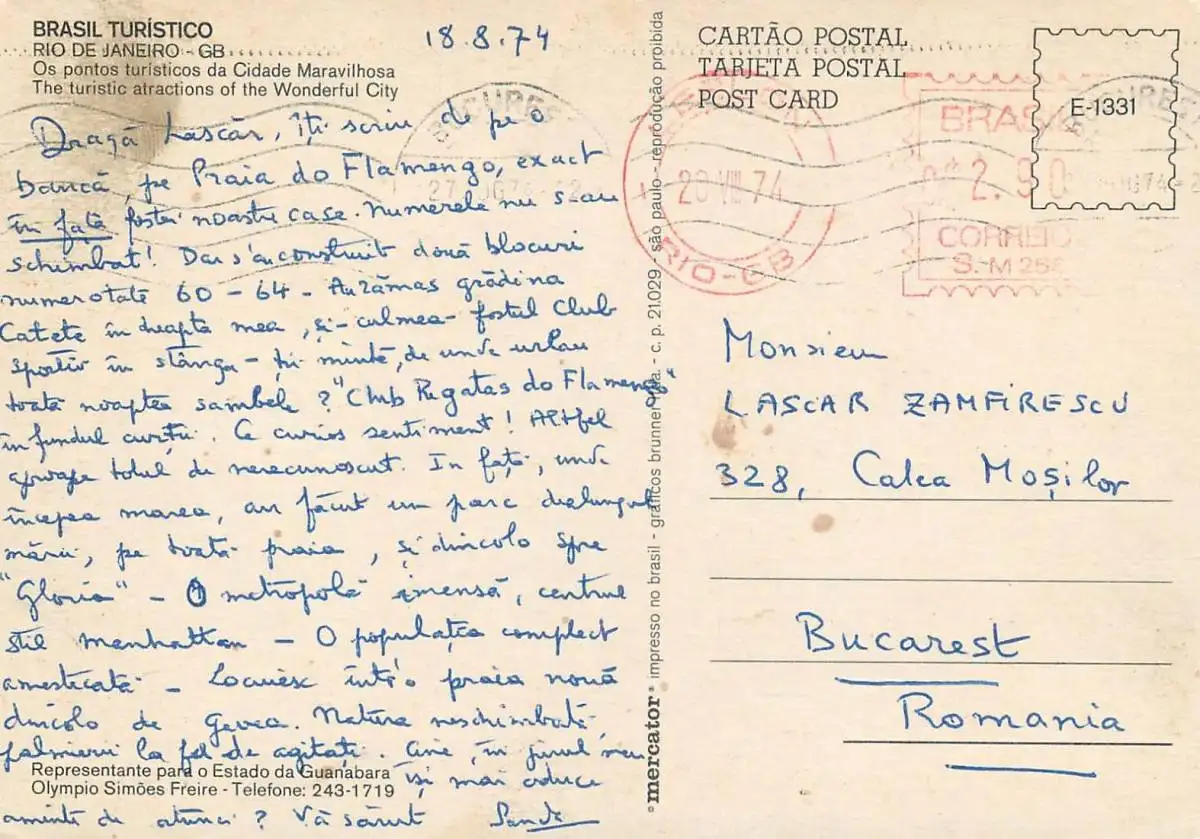 BRASIL TURÍSTICO
RIO DE JANEIRO - GB
Os pontos turísticos da Cidade Maravilhosa
The turistic atractions of the Wonderful City
18.8.74
Dragă Lascăr, îți scriu de pe o
bancă, pe Praia do Flamengo, exact
în față fostei noastre case. Numerele nu s-au
schimbat! Dar s'au construit două blocuri
numerotate 60 - 64 - Au rămas grădina
Catete în dreapta mea, și - culmea - fostul Club
sportiv în stânga - ții minte, de unde urlau
toată noaptea sambele? "Club Regatas do Flamengo"
în fundul curții. Ce curios sentiment! Altfel
aproape totul de nerecunoscut. In față, unde
începea marea, au făcut un parc dealungul
mării, pe toată praia, și dincolo spre
"Gloria" - O metropolă imensă, centrul
stil manhattan - O populația complect
amestecată - Locuiesc într'o praia nouă
dincolo de Gavea. Natura neschimbată
palmierii la fel de agitați. Cine, în jurul meu
își mai aduce
aminte de atunci? Vă sărut Sanda
Representante para o Estado da Guanabara
Olympio Simões Freire - Telefone: 243-1719
mercator impresso no brasil - gráficos brunner ltda. - c. p. 21.029 - são paulo - reprodução proibida
CARTÃO POSTAL
TARJETA POSTAL
POST CARD
E-1331
20 VIII 74
RIO-GB
BRASIL
2.90
CORREIO
S.-M 256
Monsieur
LASCAR ZAMFIRESCU
328, Calea Moșilor
Bucarest
Romania